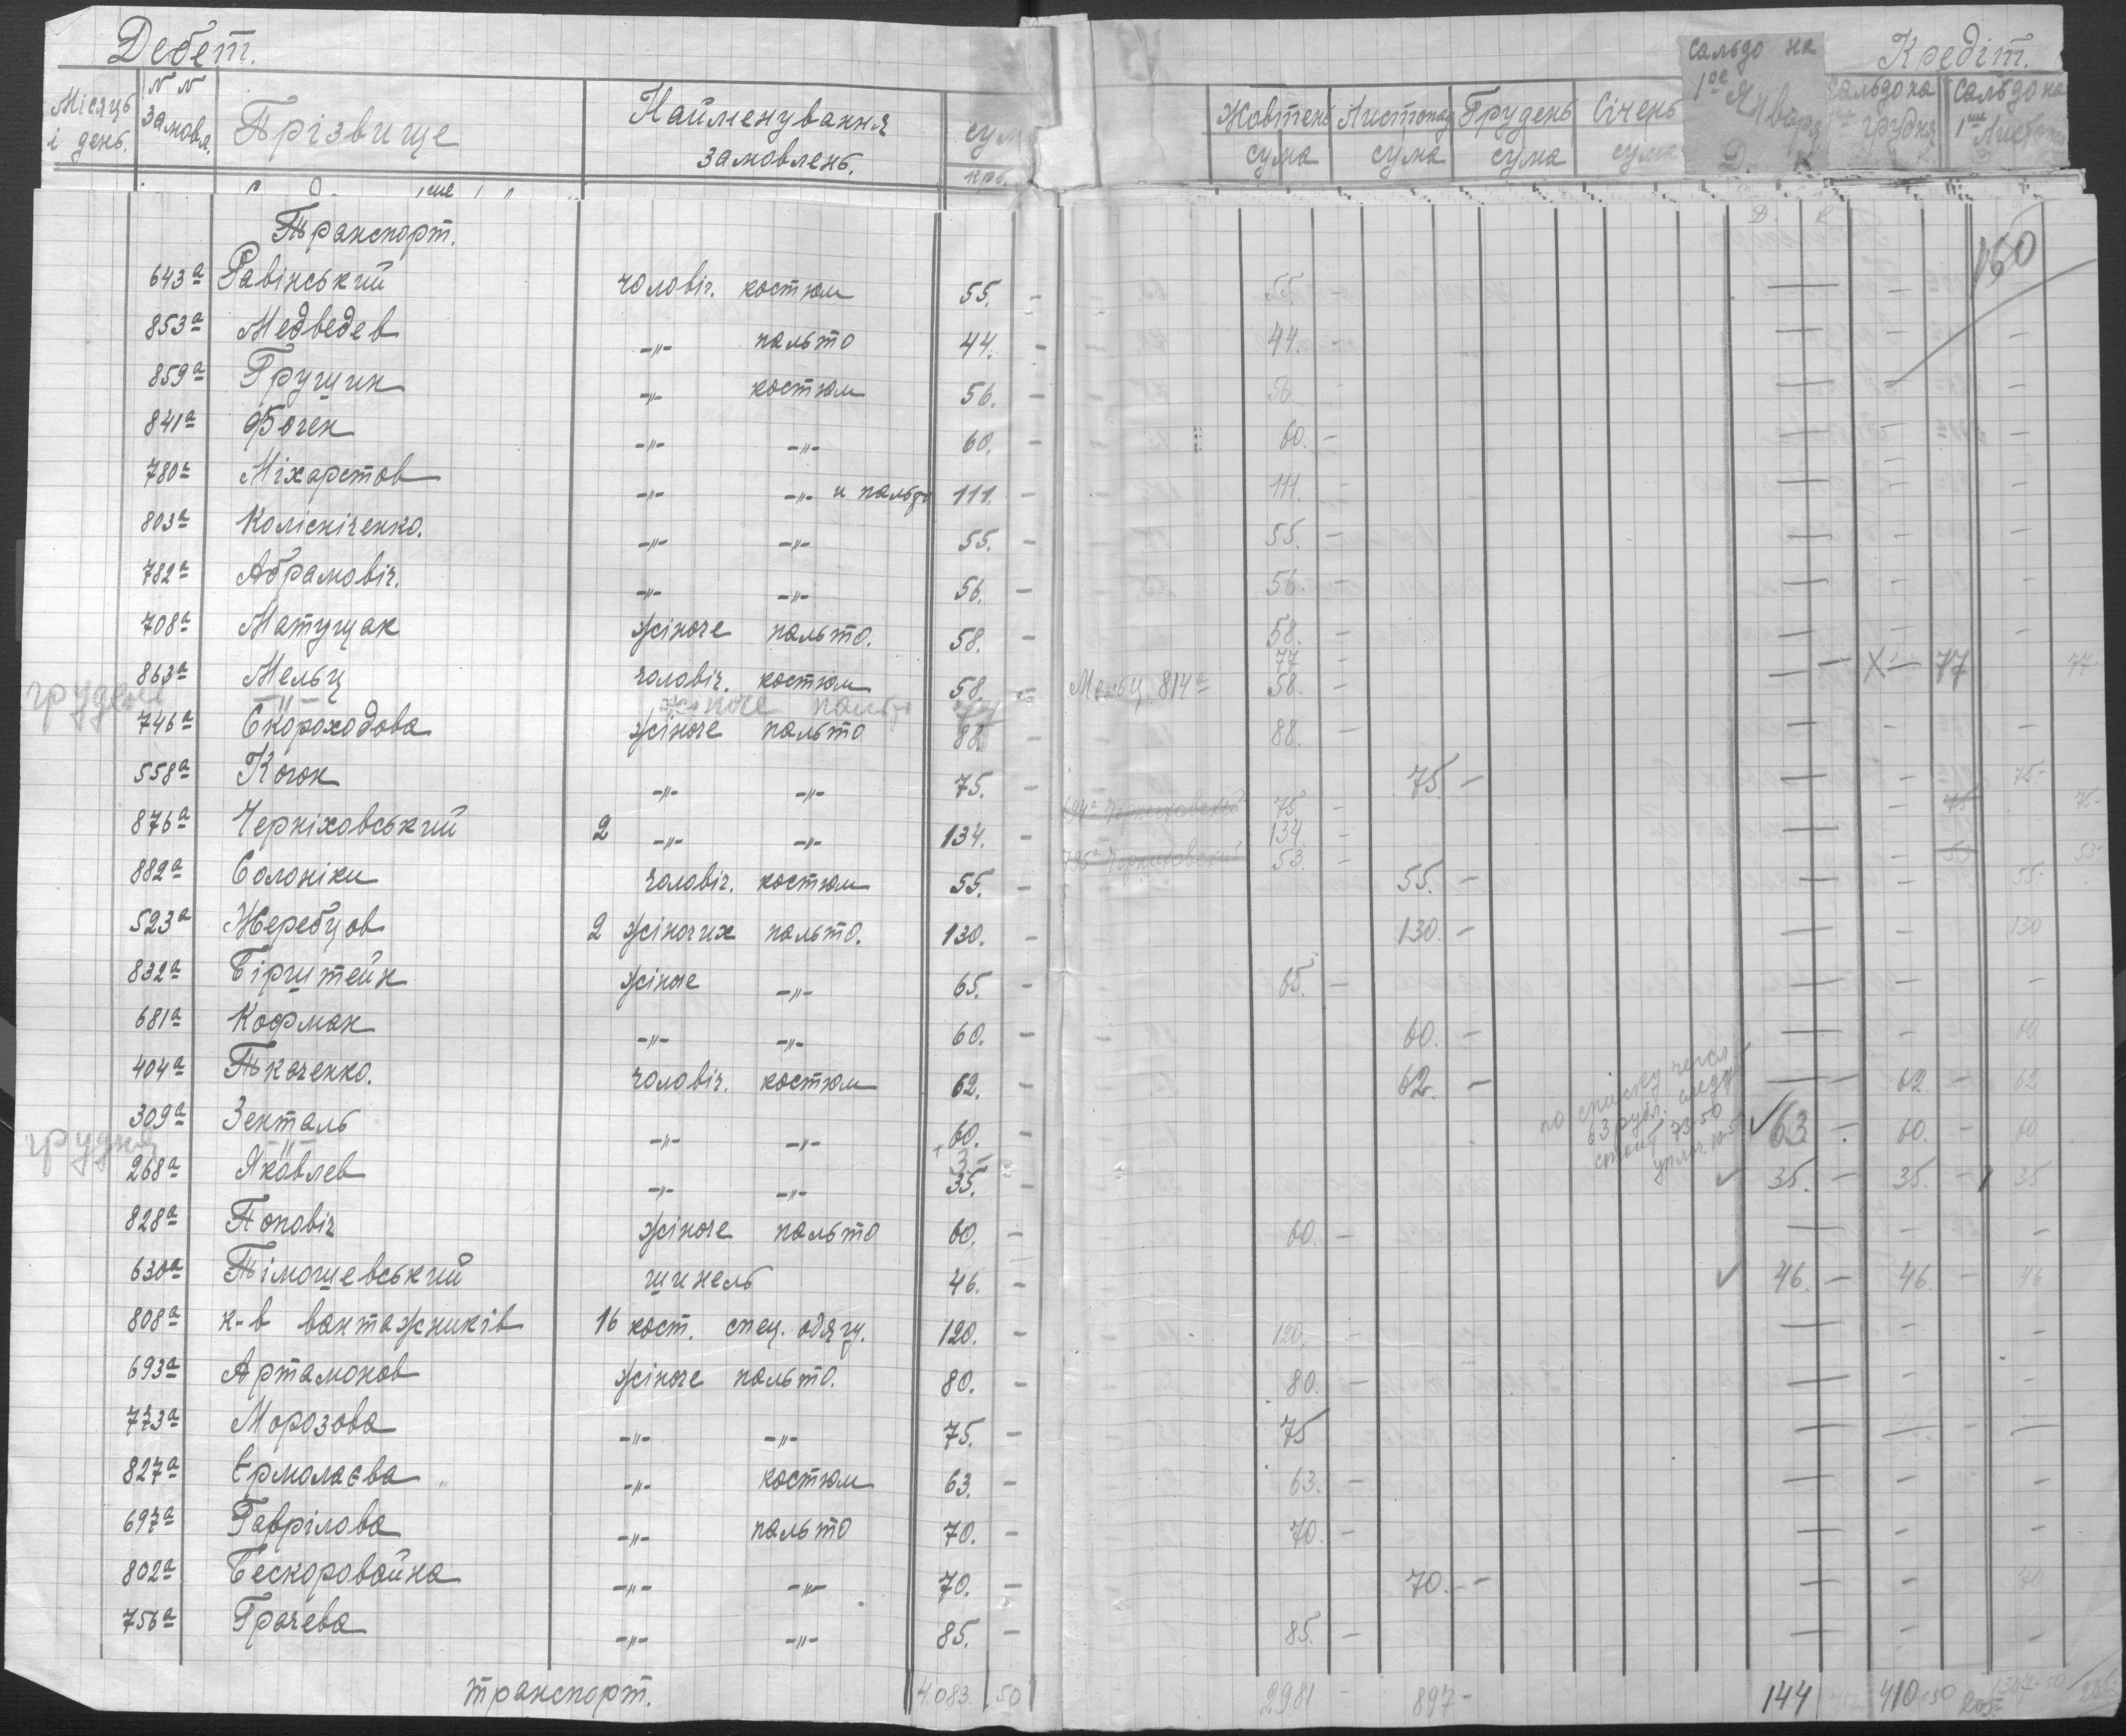 Дебет. Кредіт.
Місяць і день. N N замовл. Прізвище Найменування замовлень. сум крб. Жовтень сума Листопад сума Грудень сума Січень сума Сальдо на 1ое Января Д. К Сальдо на грудня Сальдо на 1ше
Транспорт. Д. К 160
643а Равінський чоловіч. костюм 55. - 55 -
853а Медведев -"- пальто 44. - 44. -
859а Грушин -"- костюм 56. - 56
841а Фочен -"- -"- 60. - 60. -
780а Міхарстов -"- -"- и пальто 111. - 111. -
803а Колісніченко. -"- -"- 55. - 55. -
782а Абрамовіч. -"- -"- 56. - 56. -
708а Матущак жіноче пальто. 58. - 58. -
77 - X - 77 77-
863а Мельц чоловіч. костюм 58. - Мельц 814а 58. -
грудень -"- жіноче пальто
746а Скороходова жіноче пальто 88. - 88. -
558а Когон -"- -"- 75. - 75. - 75-
694а Черниховский 75 - 75 75-
876а Черніховський 2 -"- -"- 134. - 134 -
795а Черниховский 53. - 53 53-
882а Солоніки чоловіч. костюм 55. - 55. - 55.
523а Жеребцов 2 жіночих пальто. 130. - 130. - 130
832а Бірштейн жіноче -"- 65. - 65. -
681а Кофман -"- -"- 60. - 60. - 60
404а Ткаченко. чоловіч. костюм 62. - 62. - 62 - 62
309а Зенталь -"- -"- 60. - 63 - 60. - 60
по списку числ
63 рубл. следу
стоит 73-50
упл. 10-50
грудня -"- + 3 -
268а Яковлев -"- -"- 35. - 35. - 35. - 35
828а Попович жіноче пальто 60. - 60. -
630а Тімошевський шинель 46. - 46. - 46. - 46
808а к-в вантажників 16 кост. спец. одягу. 120. - 120. -
693а Артамонов жіноче пальто. 80. - 80. -
773а Морозова -"- -"- 75. - 75
827а Ермолаєва -"- костюм 63. - 63. -
697а Гаврілова -"- пальто 70. - 70. -
802а Бескоровайна -"- -"- 70. - 70. - 70
756а Грачева -"- -"- 85. - 85. -
транспорт. 4.083. 50 2981 - 897 - 144 410-50